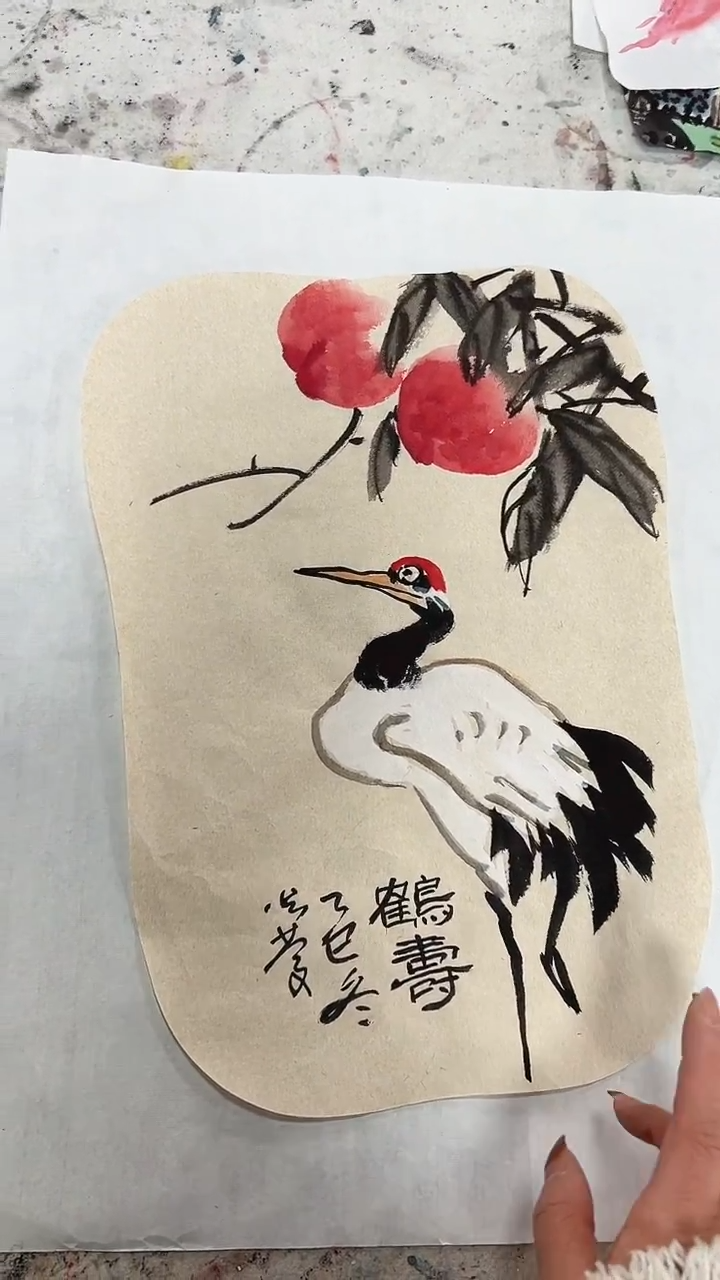 鶴壽
乙巳冬